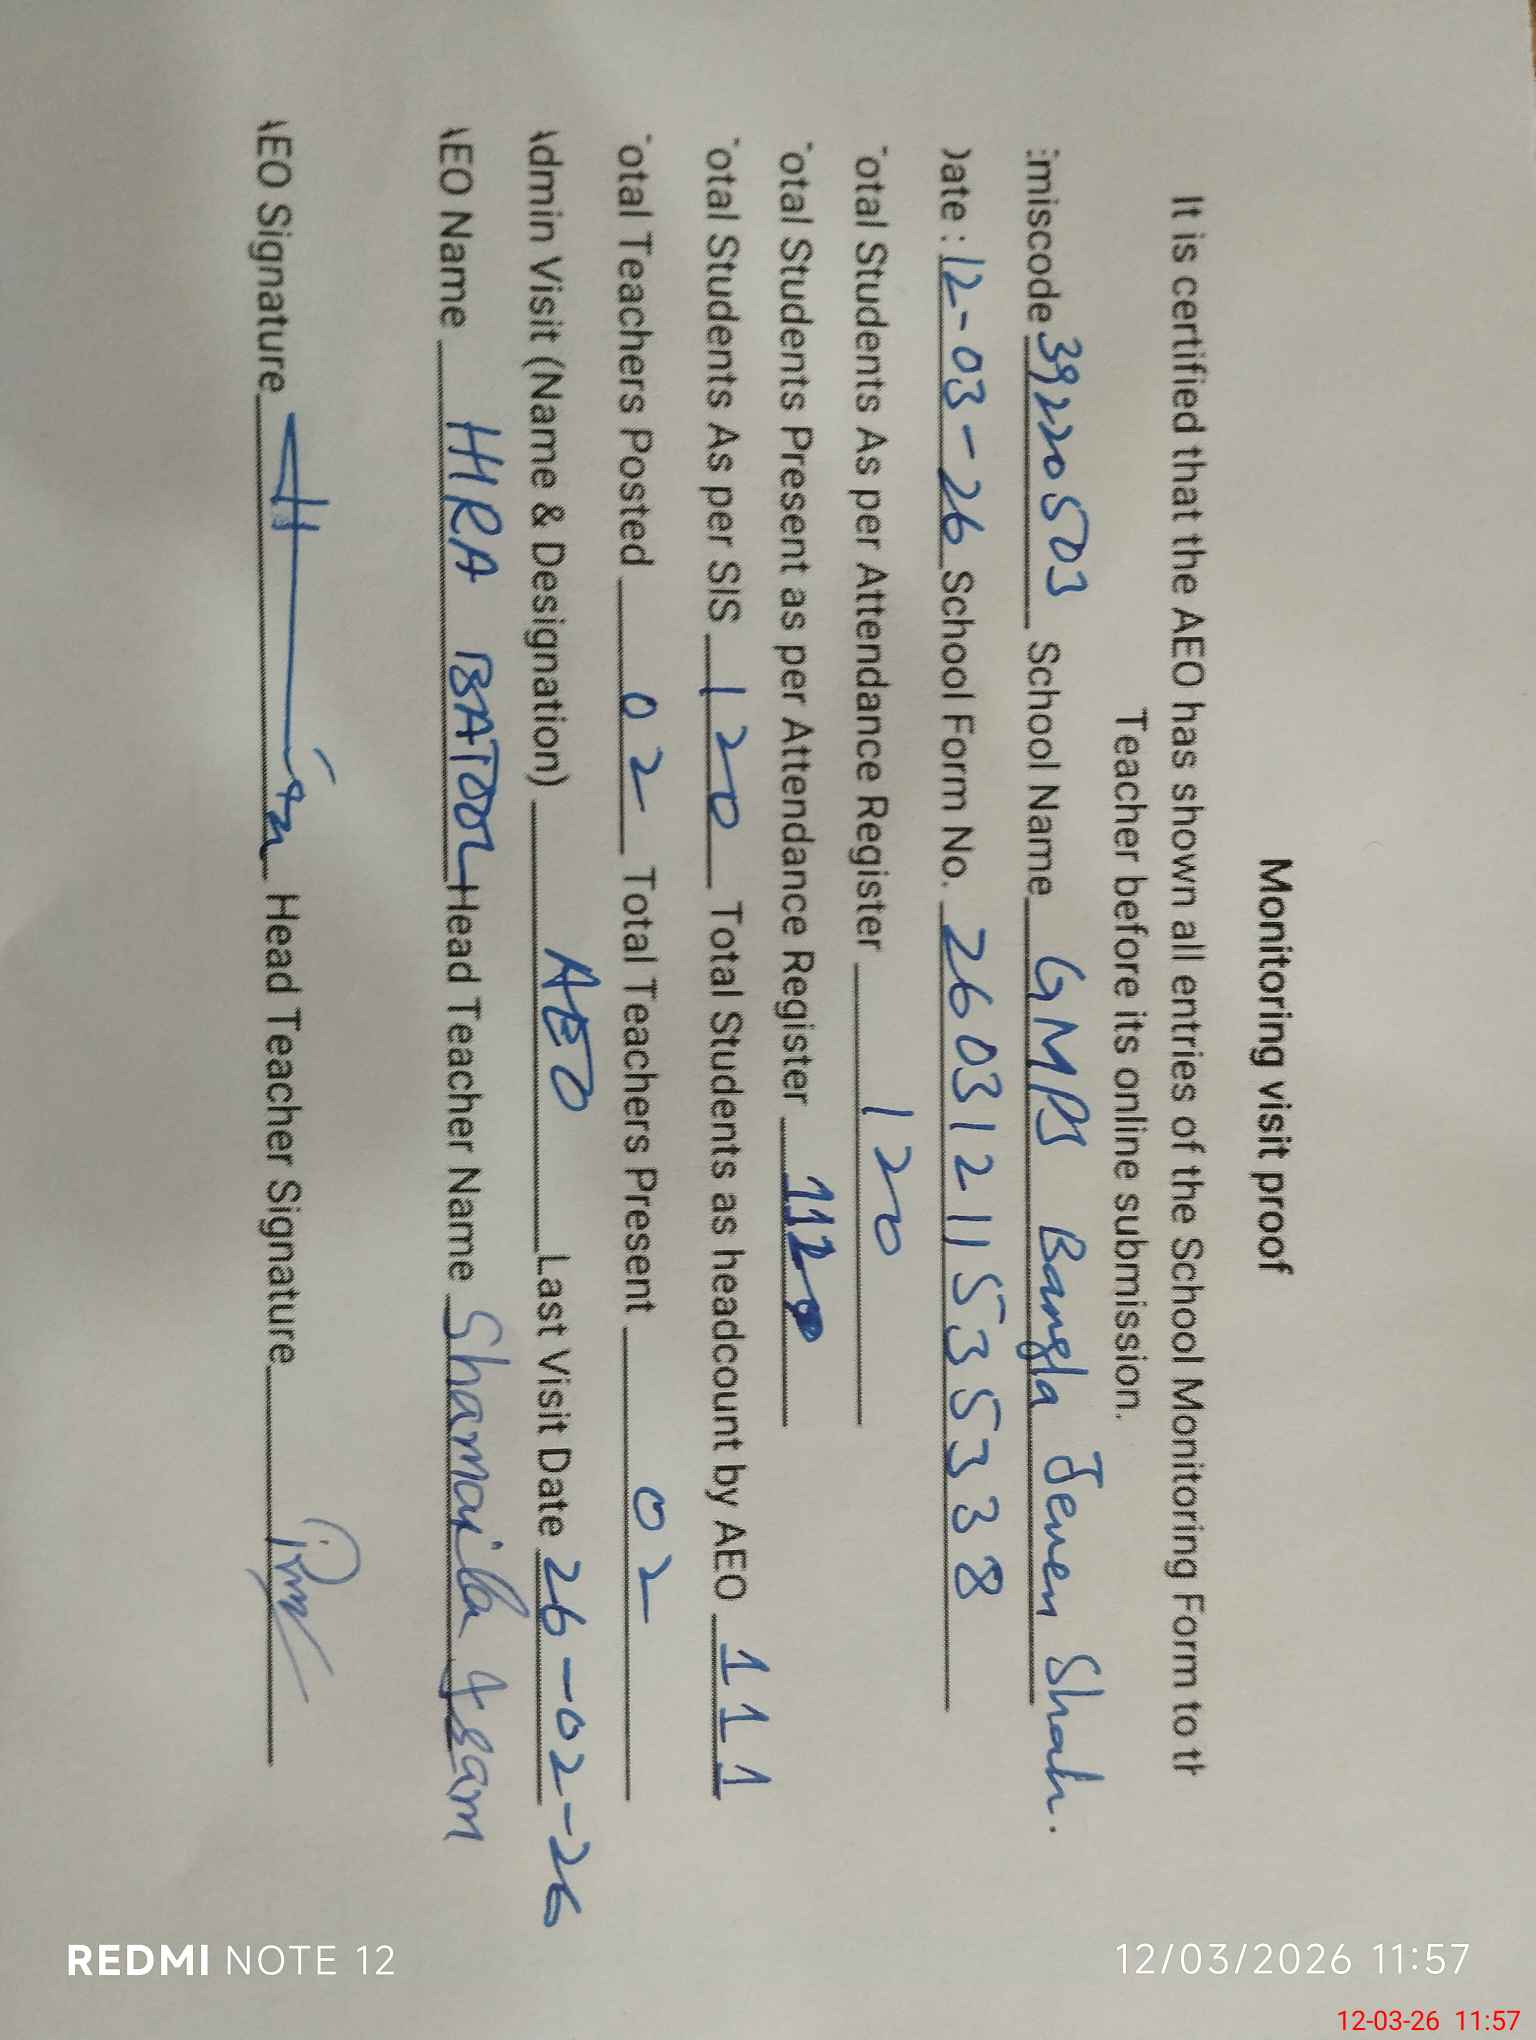 Monitoring visit proof
It is certified that the AEO has shown all entries of the School Monitoring Form to th
Teacher before its online submission.
Emiscode 39220503 School Name GMPS Bangla Jewen Shah.
Date : 12-03-26 School Form No. 260312115353538
Total Students As per Attendance Register 120
Total Students Present as per Attendance Register
Total Students As per SIS 120 Total Students as headcount by AEO 111
Total Teachers Posted 02 Total Teachers Present 02
Admin Visit (Name & Designation) AEO Last Visit Date 26-02-26
AEO Name HIRA BATOOL Head Teacher Name Shamaila Aslam
AEO Signature Head Teacher Signature
REDMI NOTE 12
12/03/2026 11:57
12-03-26 11:57